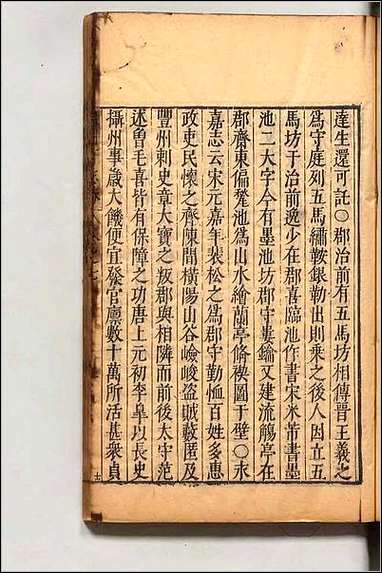 達生還可託○郡治前有五馬坊相傳晉王羲之
爲守庭列五馬繡鞍銀勒出則乘之後人因立五
馬坊于治前逸少在郡喜臨池作書宋米芾書墨
池二大字今有墨池坊郡守婁鑰又建流觴亭在
郡齋東偏甃池爲山水繪蘭亭脩禊圖于壁○永
嘉志云宋元嘉年裴松之爲郡守勤恤百姓多惠
政吏民懷之齊陳間橫陽山谷嶮峻盜賊藪匿及
豐州刺史章大寶之叛郡與相隣而前後太守范
述曾毛喜皆有保障之功唐上元初李皐以長史
攝州事歲大饑便宜發官廩數十萬所活甚衆貞